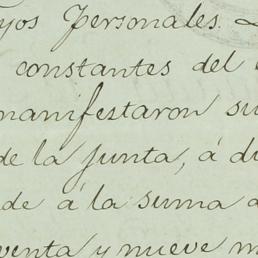 yos Personales.
constantes del
manifestaron su
de la Junta, á du
de á la suma d
venta y nueve m